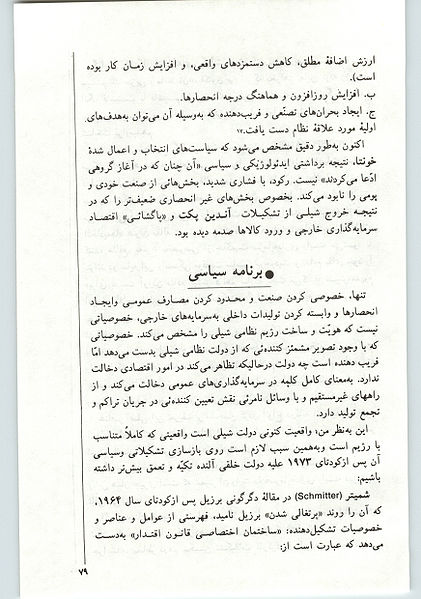 ارزش اضافهٔ مطلق، کاهش دستمزدهای واقعی، و افزایش زمان کار بوده
است).
ب. افزایش روزافزون و هماهنگ درجه انحصارها.
ج. ایجاد بحران‌های تصنّعی و فریب‌دهنده که به‌وسیله آن می‌توان به‌هدف‌های
اولیهٔ مورد علاقهٔ نظام دست یافت.
اکنون به‌طور دقیق مشخص می‌شود که سیاست‌های انتخاب و اعمال شدهٔ
خونتا، نتیجه برداشتی ایدئولوژیکی و سیاسی «آن چنان که در آغاز گروهی
ادّعا می‌کردند» نیست. رکود، با فشاری شدید، بخش‌هائی از صنعت خودی و
بومی را نابود می‌کند. بخصوص بخش‌های غیر انحصاری ضعیف‌تر را که در
نتیجـه خروج شیلـی از تشکیلات آنـدین پکت و «باگشائی» اقتصـاد
سرمایه‌گذاری خارجی و ورود کالاها صدمه دیده بود.
●برنامه سیاسی
تنها، خصوصی کردن صنعت و محدود کردن مصارف عمومـی وایجـاد
انحصارها و وابسته کردن تولیدات داخلی به‌سرمایه‌های خارجی، خصوصیاتی
نیست که هویّت و ساخت رژیم نظامی شیلی را مشخص می‌کند. خصوصیاتی
که با وجود تصویر مشمئز کننده‌ئی که از دولت نظامی شیلی بدست می‌دهد امّا
فریب دهنده است چه دولت درحالیکه تظاهر می‌کند در امور اقتصادی دخالت
ندارد. به‌معنای کامل کلمه در سرمایه‌گذاری‌های عمومی دخالت می‌کند و از
راههای غیرمستقیم و با وسائل نامرئی نقش تعیین کننده‌ئی در جریان تراکم و
تجمع تولید دارد.
این به‌نظر من، واقعیت کنونی دولت شیلی است واقعیتی که کاملاً متناسب
با رژیم است وبه‌همین سبب لازم است روی بازسازی تشکیلاتی وسیاسی
آن پس ازکودتای ۱۹۷۳ علیه دولت خلقی آلنده تکیّه و تعمق بیش‌تر داشته
باشیم:
شمیتر (Schmitter) در مقالهٔ دگرگونی برزیل پس ازکودتای سال ۱۹۶۴،
که آن را روند «پرتغالی شدن» برزیل نامید، فهرستی از عوامل و عناصر و
خصوصیات تشکیل‌دهنده: «ساختمان اختصاصی قانون اقتدار» به‌دست
می‌دهد که عبارت است از:
۷۹